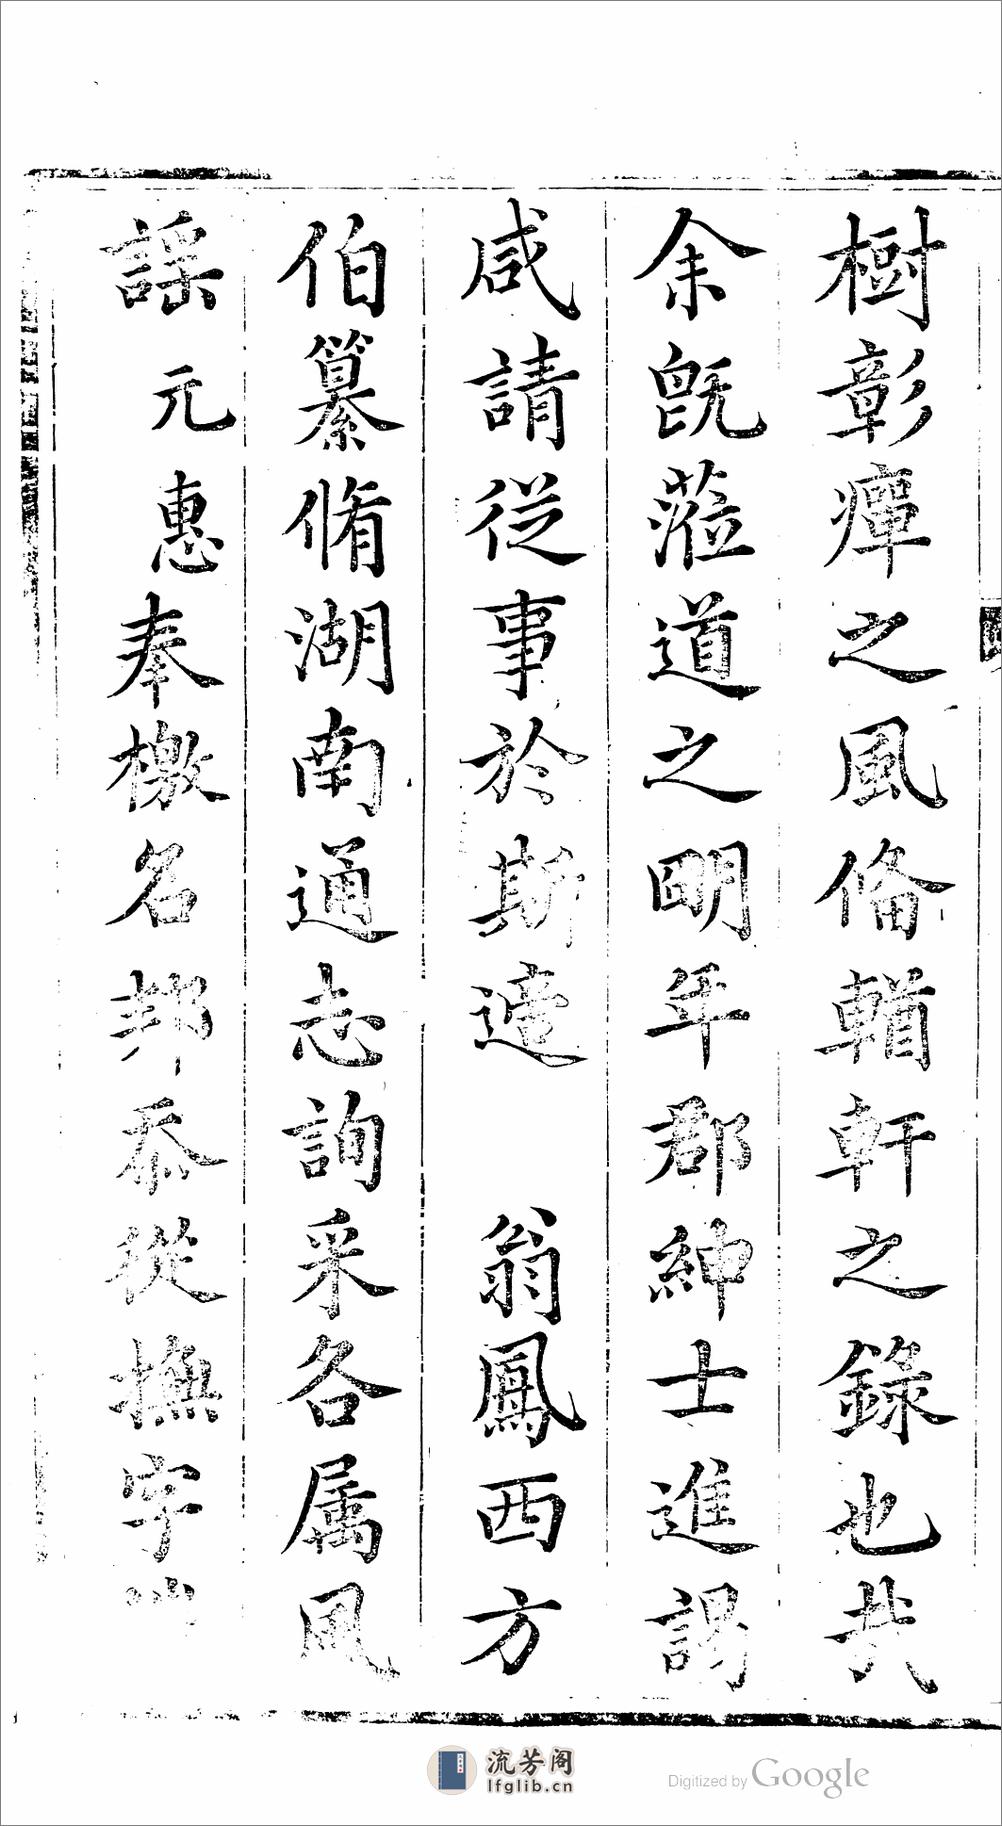 樹彰癉之風脩輶軒之錄也㢤
余旣蒞道之明年郡紳士進謁
咸請從事於斯適　翁鳳西方
伯纂脩湖南通志詢采各属風
謡元惠奉檄名邦忝從撫字
流芳阁
lfglib.cn
Digitized by Google